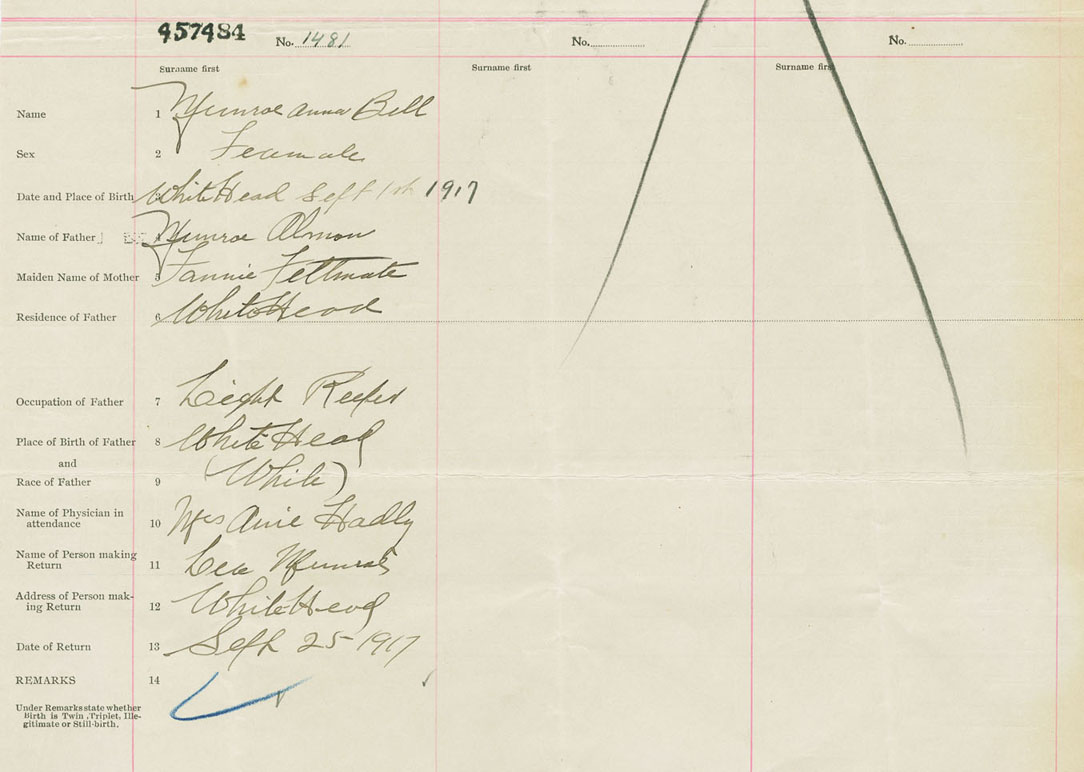 457484 No. 1481 No. No.
Surname first Surname first Surname first
Name 1 Munroe Anna Bell
Sex 2 Feamale
Date and Place of Birth 3 WhiteHead Sept 1st 1917
Name of Father 4 Munroe Almon
Maiden Name of Mother 5 Fannie Feltmate
Residence of Father 6 WhiteHead
Occupation of Father 7 Leight Keeper
Place of Birth of Father 8 White Head
and
Race of Father 9 (White)
Name of Physician in
attendance 10 Mrs Anie Hadly
Name of Person making
Return 11 Munroe
Address of Person mak-
ing Return 12 WhiteHead
Date of Return 13 Sept 25 1917
REMARKS 14
Under Remarks state whether
Birth is Twin, Triplet, Ille-
gitimate or Still-birth.